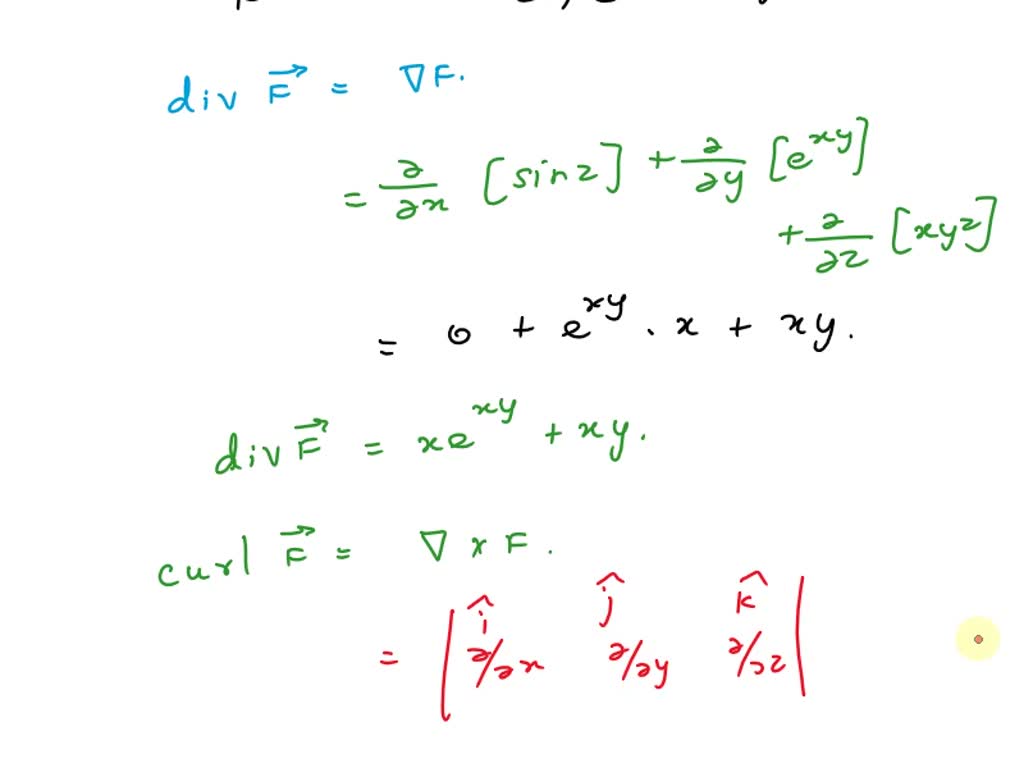 div F⃗ = ∇F.
= ∂/∂x [sinz] + ∂/∂y [e^xy]
+ ∂/∂z [xyz]
= 0 + e^xy . x + xy.
div F⃗ = xe^xy + xy.
curl F⃗ = ∇ x F.
= | î ĵ k̂ |
∂/∂x ∂/∂y ∂/∂z